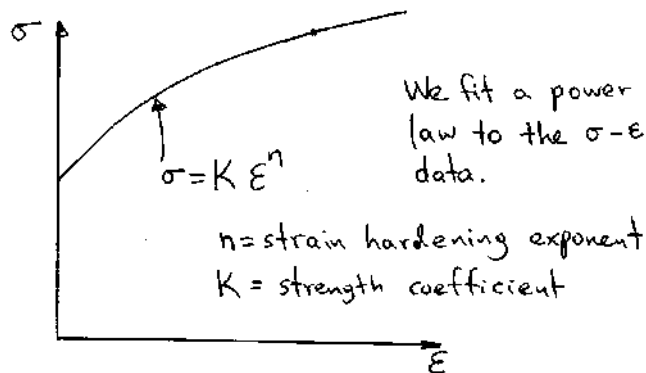 σ
We fit a power
law to the σ-ε
data.
σ=K ε^n
n=strain hardening exponent
K = strength coefficient
ε